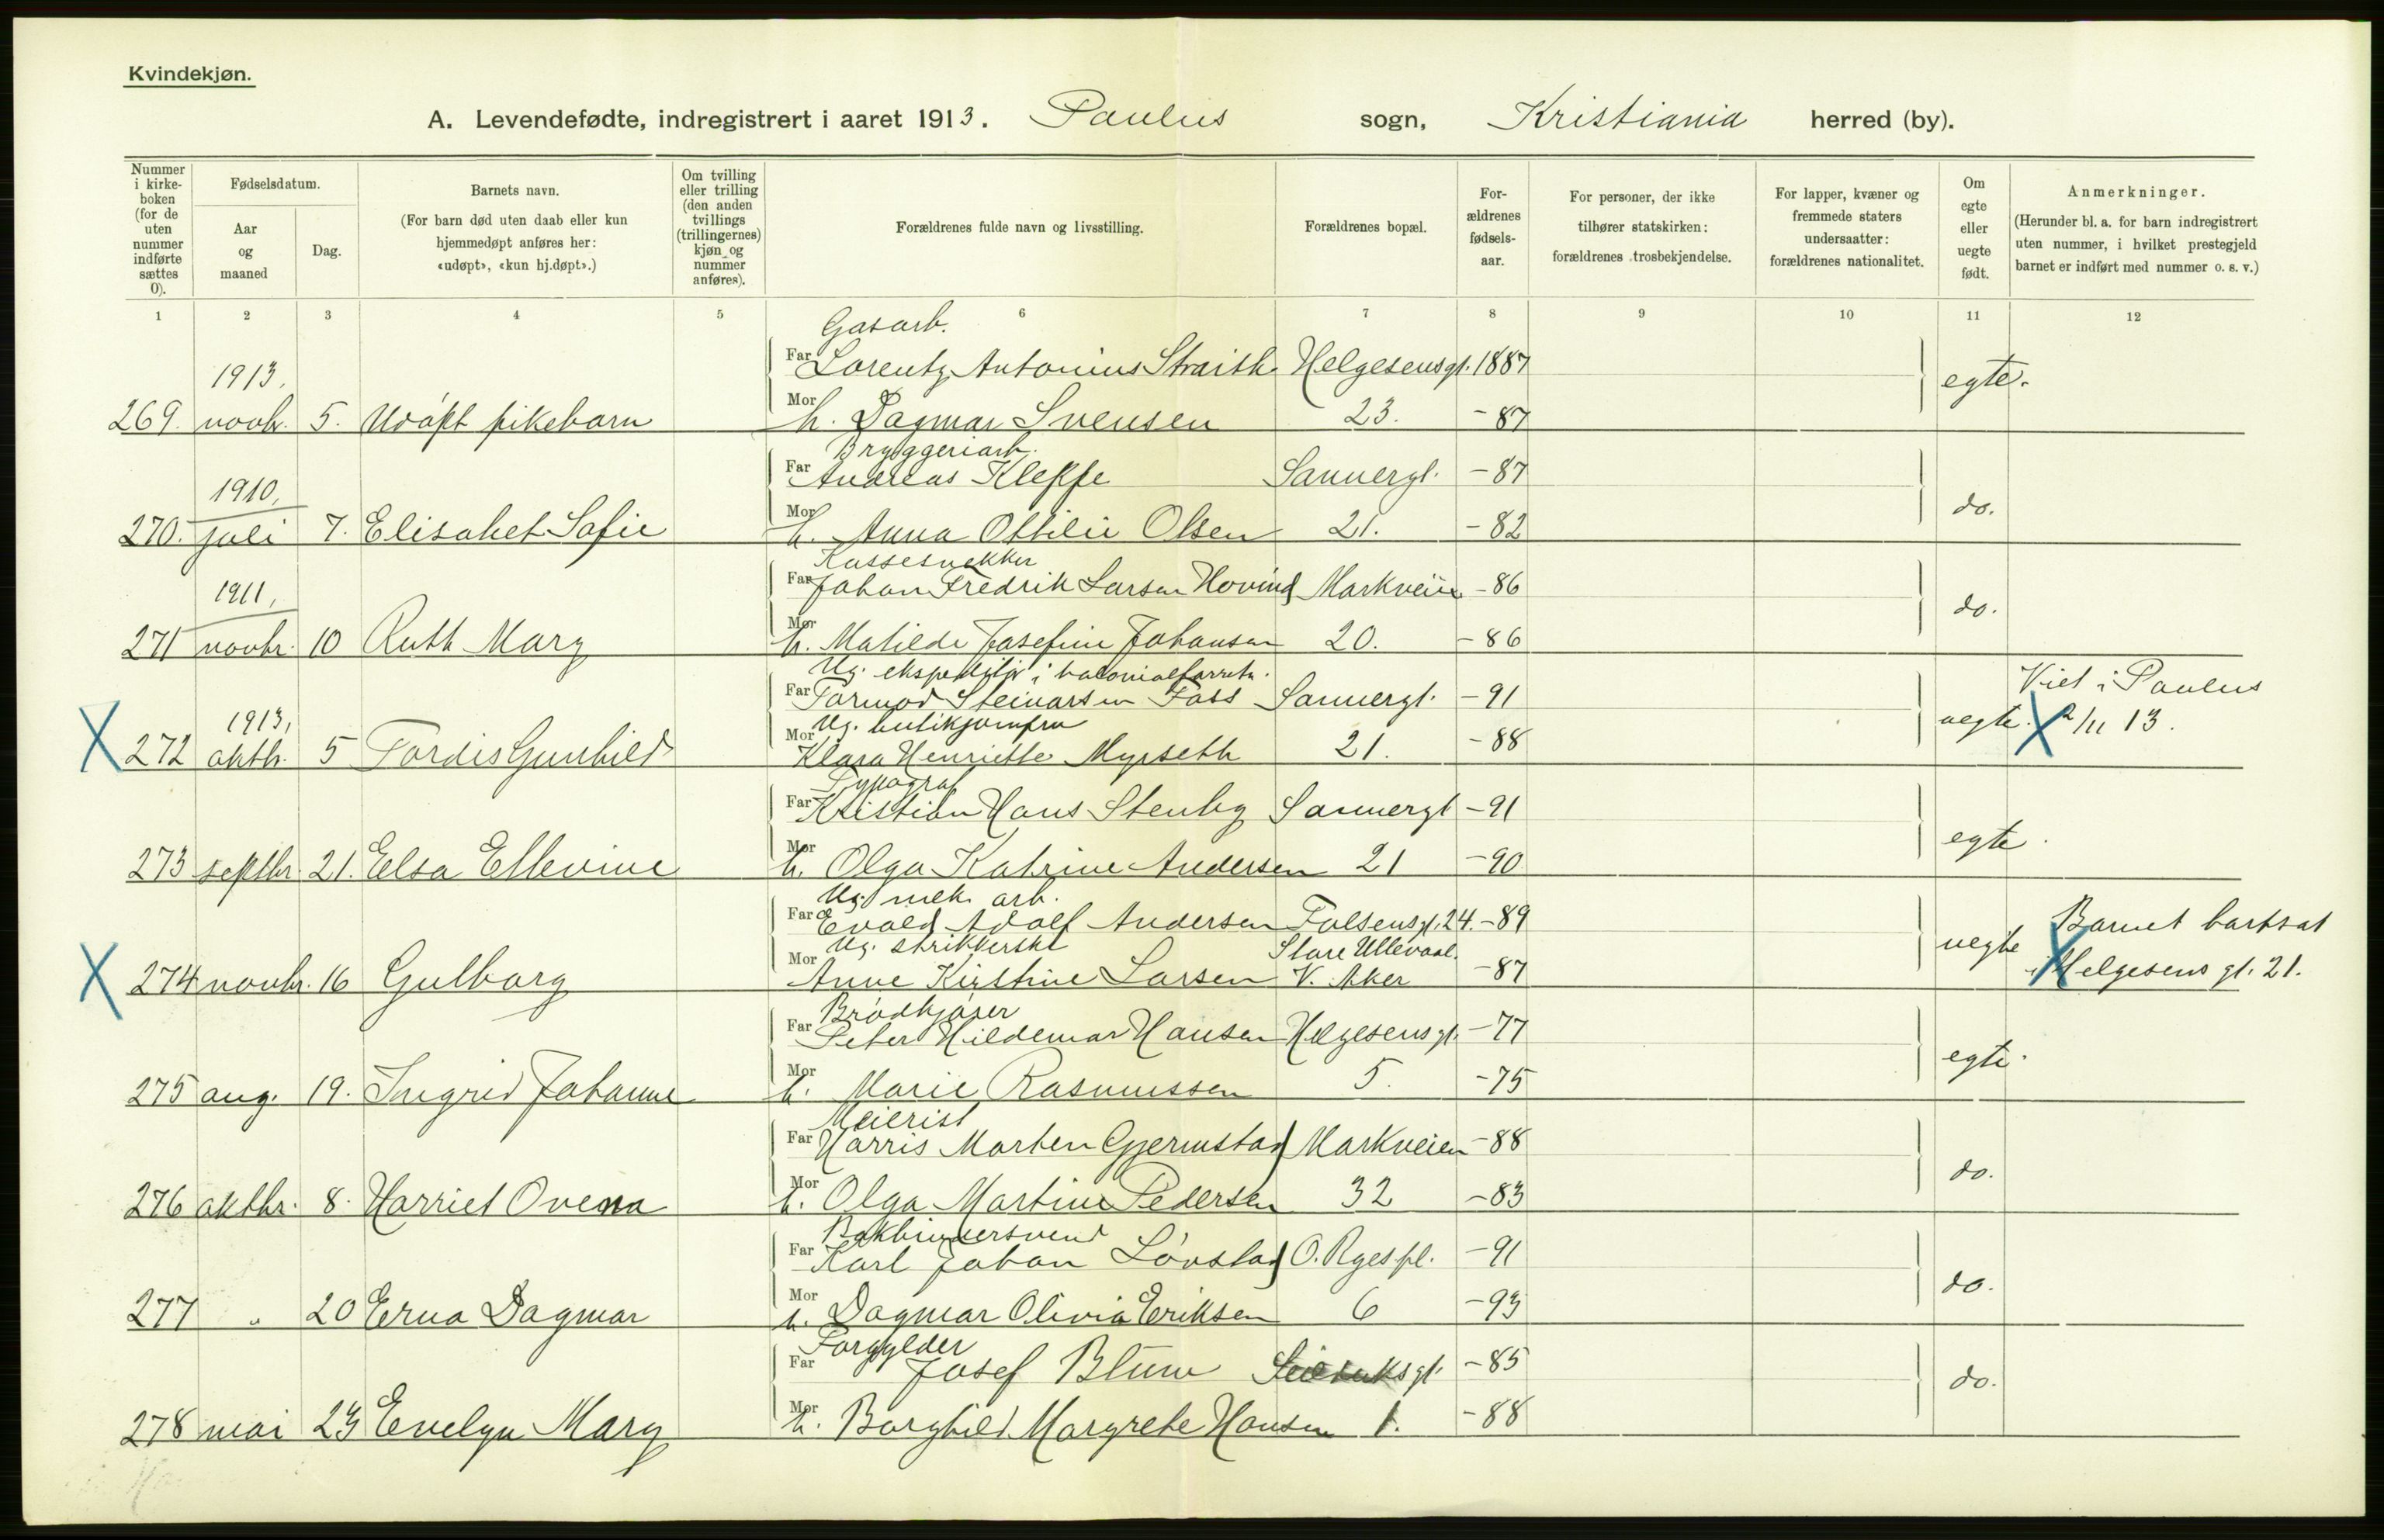 Kvindekjøn.
A. Levendefødte, indregistrert i aaret 1913. Paulus sogn, Kristiania herred (by).
Nummer i kirke-boken (for de uten nummer indførte sættes 0).
Fødselsdatum.
Aar og maaned
Dag.
Barnets navn.
(For barn død uten daab eller kun hjemmedøpt anføres her: «udøpt», «kun hj.døpt».)
Om tvilling eller trilling (den anden tvillings (trillingernes) kjøn og nummer anføres).
Forældrenes fulde navn og livsstilling.
Forældrenes bopæl.
For-ældrenes fødsels-aar.
For personer, der ikke tilhører statskirken: forældrenes trosbekjendelse.
For lapper, kvæner og fremmede staters undersaatter: forældrenes nationalitet.
Om egte eller uegte født.
Anmerkninger.
(Herunder bl. a. for barn indregistrert uten nummer, i hvilket prestegjeld barnet er indført med nummer o. s. v.)
1 2 3 4 5 6 7 8 9 10 11 12
Gasarb.
1913. Far Lorentz Antonius Straith Helgesensgt. 1887 egte.
269. novbr. 5. Udøpt pikebarn Mor h. Dagmar Svensen 23. -87
Bryggeriarb.
1910, Far Andreas Kleppe Sannergt. -87 do.
270. juli 7. Elisabet Sofie Mor h. Anna Ottilie Olsen 21. -82
Kassesnekker
1911, Far Johan Fredrik Larsen Hovind Markveien -86 do.
271 novbr. 10 Ruth Mary Mor h. Matilde Josefine Johansen 20. -86
Ug. ekspeditør i kolonialforretn.
1913, Far Tormod Steinarsen Foss Sannergt. -91 uegte. Viet i Paulus
Mor Ug. butikjomfru
X 272 oktbr. 5 Tordis Gunhild Klara Henriette Myrseth 21. -88 X 2/11 13.
Typograf
Far Kristian Hans Stenby Sannergt -91 egte.
273 septbr. 21. Elsa Ellevine Mor h. Olga Katrine Andersen 21 -90
Ug. mek. arb.
Far Evald Adolf Andersen Falsensgt. 24. -89 uegte Barnet bortsat
Mor Ug. strikkerske Store Ullevaal.
X 274 novbr. 16 Gulborg Anne Kirstine Larsen V. Aker -87 X i Helgesens gt. 21.
Brødkjører
Far Peter Hildemar Hansen Helgesensgt. -77 egte.
275 aug. 19. Ingrid Johanne Mor h. Marie Rasmussen 5. -75
Meierist
Far Harris Morten Gjermstad Markveien -88 do.
276 oktbr. 8. Harriet Ovena Mor h. Olga Martine Pedersen 32 -83
Bokbindersvend
Far Karl Johan Løvstad O. Ryes pl. -91 do.
277 " 20 Erna Dagmar Mor h. Dagmar Olivia Eriksen 6 -93
Forgylder
Far Josef Blum -85 do.
278 mai 23 Evelyn Mary Mor h. Borghild Margrete Hansen 1. -88